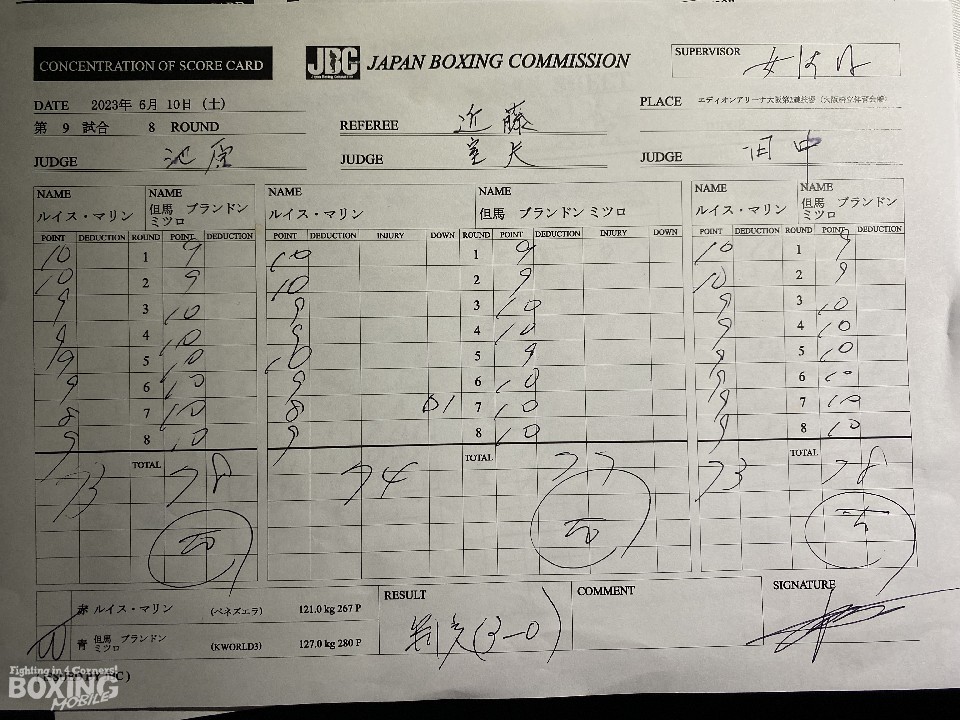 CONCENTRATION OF SCORE CARD
JBC JAPAN BOXING COMMISSION
SUPERVISOR
DATE 2023年 6月 10日 (土)
PLACE エディオンアリーナ大阪第2競技場 (大阪府立体育会館)
第 9 試合 8 ROUND
REFEREE 近藤
JUDGE 池原 JUDGE JUDGE 田中
NAME NAME NAME NAME NAME NAME
ルイス・マリン 但馬 ブランドン ミツロ ルイス・マリン 但馬 ブランドン ミツロ ルイス・マリン 但馬 ブランドン ミツロ
POINT DEDUCTION ROUND POINT DEDUCTION POINT DEDUCTION INJURY DOWN ROUND POINT DEDUCTION INJURY DOWN POINT DEDUCTION ROUND POINT DEDUCTION
10 1 9 10 1 9 10 1 9
10 2 9 10 2 9 10 2 9
9 3 10 9 3 10 9 3 10
9 4 10 9 4 10 9 4 10
9 5 10 10 5 9 9 5 10
9 6 10 9 6 10 9 6 10
8 7 10 8 D1 7 10 9 7 10
9 8 10 9 8 10 9 8 10
TOTAL TOTAL TOTAL
73 78 74 77 73 78
赤 ルイス・マリン (ベネズエラ) 121.0 kg 267 P
青 但馬 ブランドン ミツロ (KWORLD3) 127.0 kg 280 P
W
RESULT
(3-0)
COMMENT
SIGNATURE
Fighting in 4 Corners!
BOXING
MOBILE